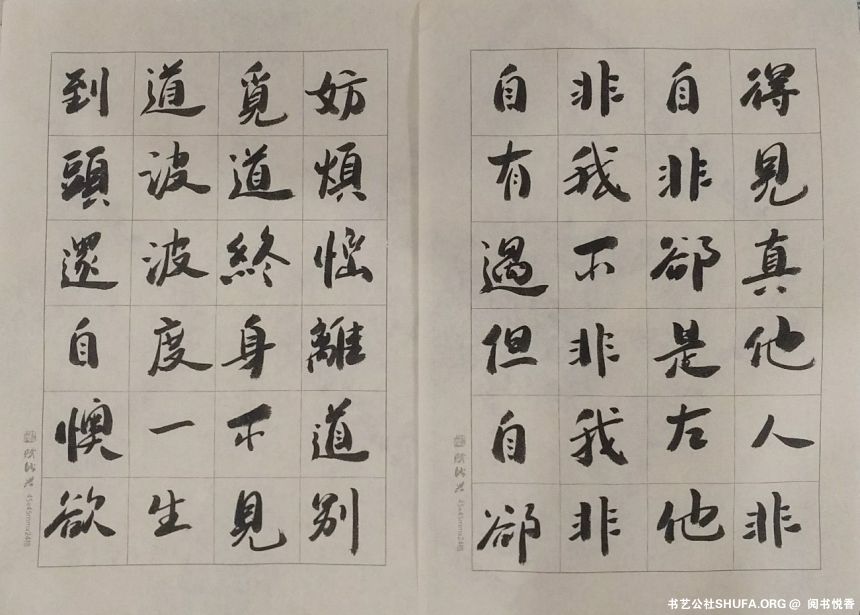 妨煩惱離道別
覓道終身不見
道波波度一生
到頭還自懊欲
得見真他人非
自非卻是左他
非我不非我非
自有過但自卻
书艺公社SHUFA.ORG @ 阅书悦香